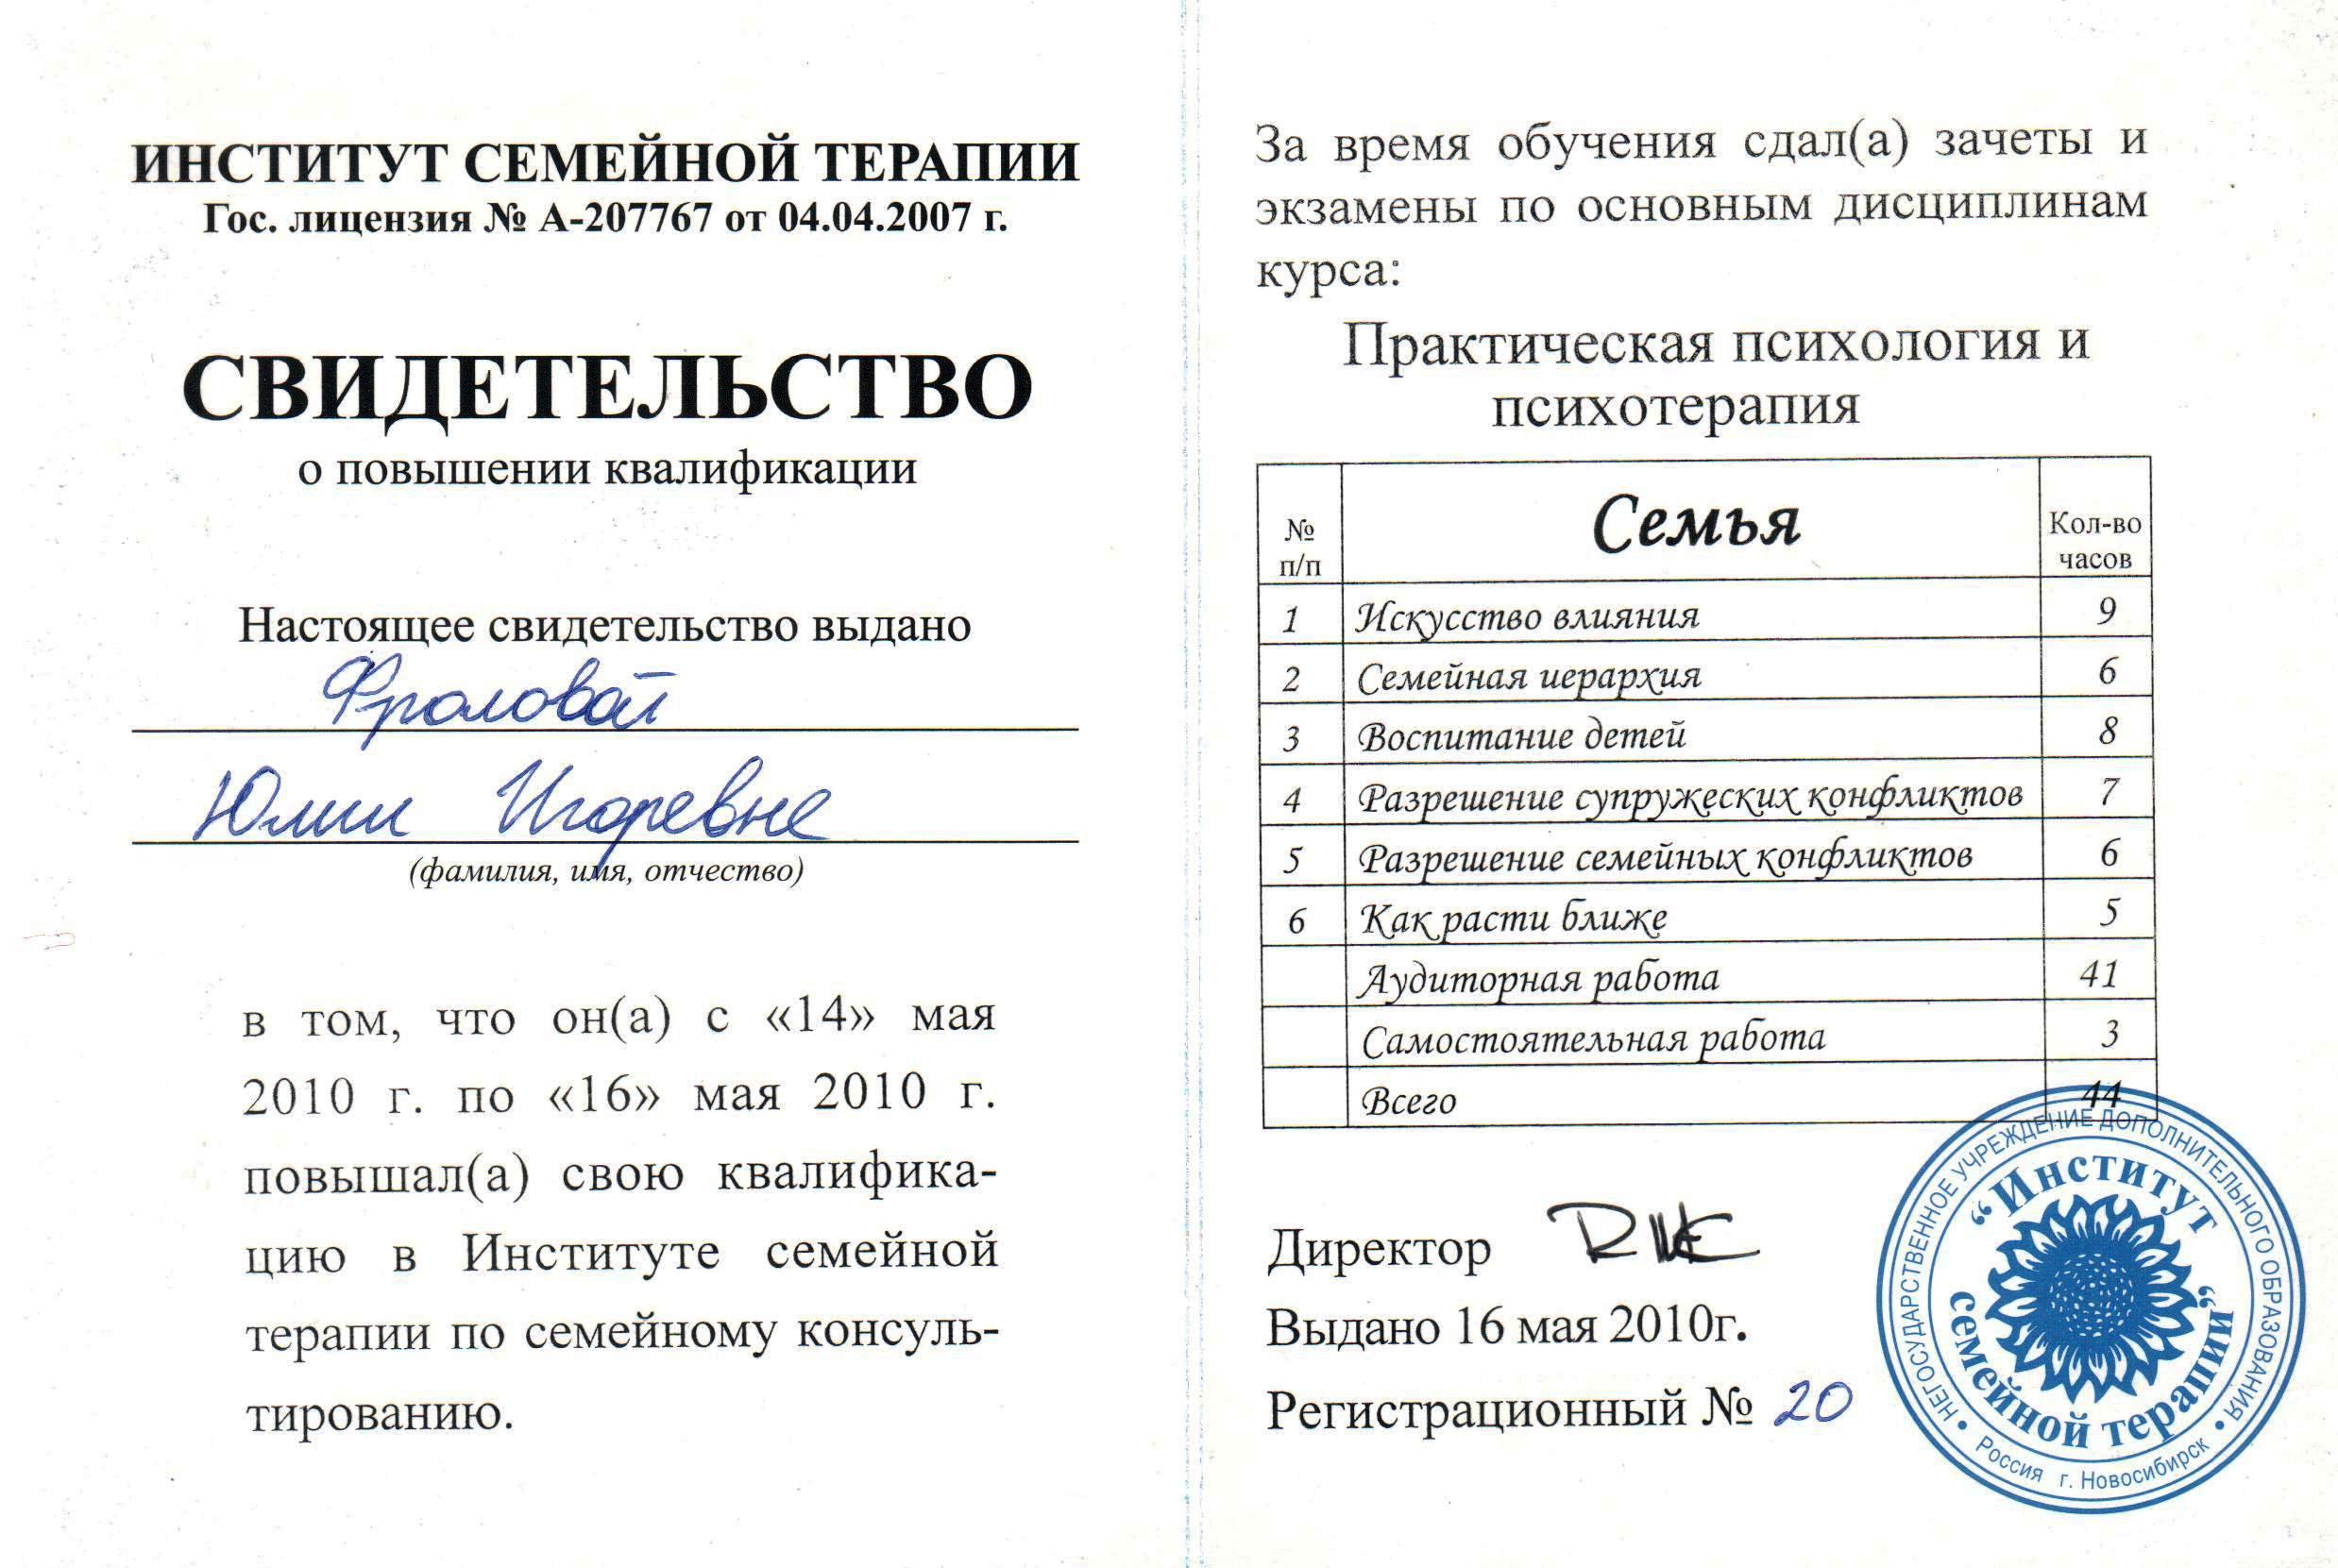 ИНСТИТУТ СЕМЕЙНОЙ ТЕРАПИИ
Гос. лицензия № А-207767 от 04.04.2007 г.
СВИДЕТЕЛЬСТВО
о повышении квалификации
Настоящее свидетельство выдано
Фроловой
Юлии Игоревне
(фамилия, имя, отчество)
в том, что он(а) с «14» мая
2010 г. по «16» мая 2010 г.
повышал(а) свою квалифика-
цию в Институте семейной
терапии по семейному консуль-
тированию.
За время обучения сдал(а) зачеты и
экзамены по основным дисциплинам
курса:
Практическая психология и
психотерапия
№ п/п Семья Кол-во часов
1 Искусство влияния 9
2 Семейная иерархия 6
3 Воспитание детей 8
4 Разрешение супружеских конфликтов 7
5 Разрешение семейных конфликтов 6
6 Как расти ближе 5
Аудиторная работа 41
Самостоятельная работа 3
Всего 44
Директор
Выдано 16 мая 2010г.
Регистрационный № 20
НЕГОСУДАРСТВЕННОЕ УЧРЕЖДЕНИЕ ДОПОЛНИТЕЛЬНОГО ОБРАЗОВАНИЯ
“Институт
семейной терапии”
Россия г. Новосибирск